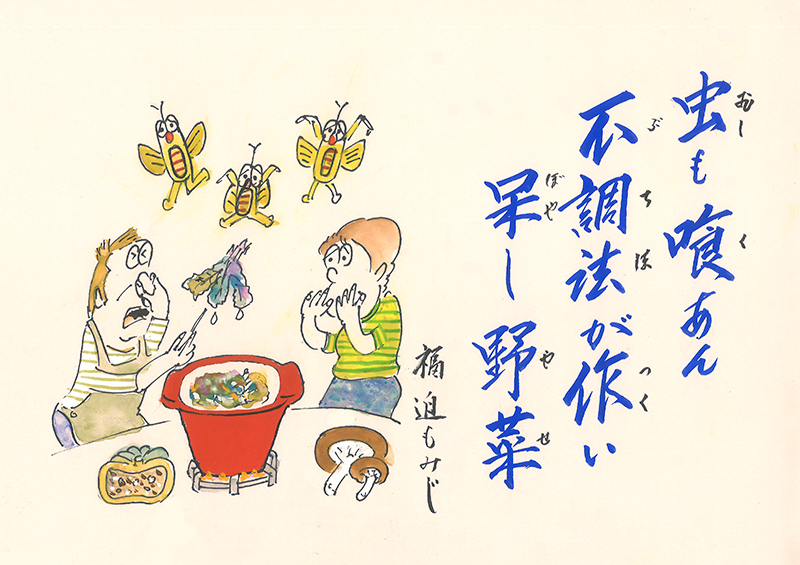 虫も喰あん
むし く
不調法が作い
ぶちほ つく
呆し野菜
ぼや やせ
福迫もみじ